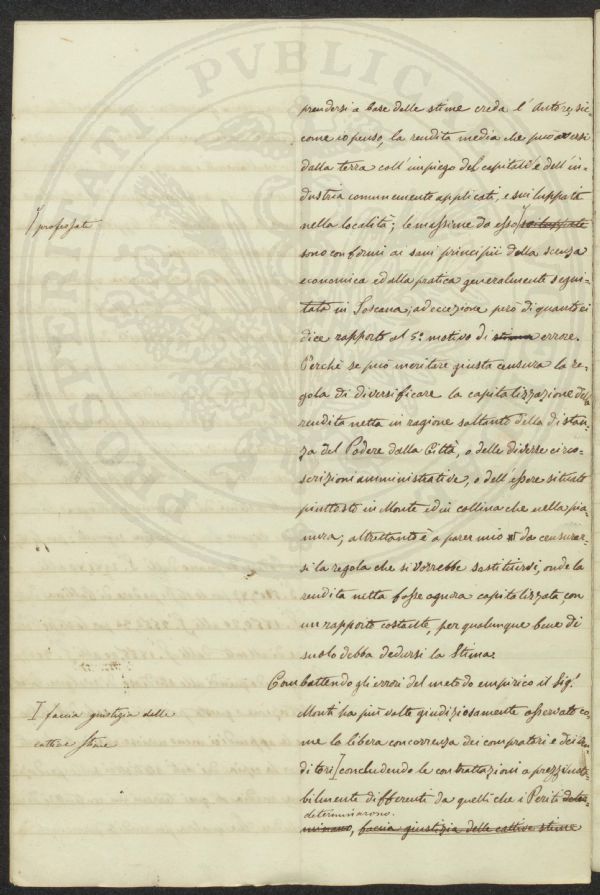 PROSPERITATI PVBLICAE
prendersi a base delle stime creda l'Autore, sic-
come io penso, la rendita media che può aversi
dalla terra coll'impiego del capitale e dell'in-
dustria comunemente applicati, e sviluppati
nella località; le massime da esso sviluppate
professate
sono conformi ai sani principii della scienza
economica ed alla pratica generalmente segui-
tata in Toscana; ad eccezione però di quanto ci
dice rapporto al 5.º motivo di stima errore.
Perchè se può meritare giusta censura la re-
gola di diversificare la capitalizzazione della
rendita netta in ragione soltanto della distan-
za del Podere dalla Città, o delle diverse circo-
scrizioni amministrative, o dell'essere situato
piuttosto in Monte ed in collina che nella pia-
nura; altrettanto è a parer mio da censurar-
si la regola che si vorrebbe sostituirdi, onde la
rendita netta fosse ognora capitalizzata, con
un rapporto costante, per qualunque bene di
suolo debba dedursi la Stima.
Combattendo gli errori del metodo empirico il Sig.r
Monti ha più volte giudiziosamente osservato co-
me la libera concorrenza dei compratori e dei ven-
ditori concludendo le contrattazioni a prezzi nota-
faccia giustizia delle
cattive stime
bilmente differenti da quelli che i Periti deter-
determinarono.
minano, faccia giustizia delle cattive stime